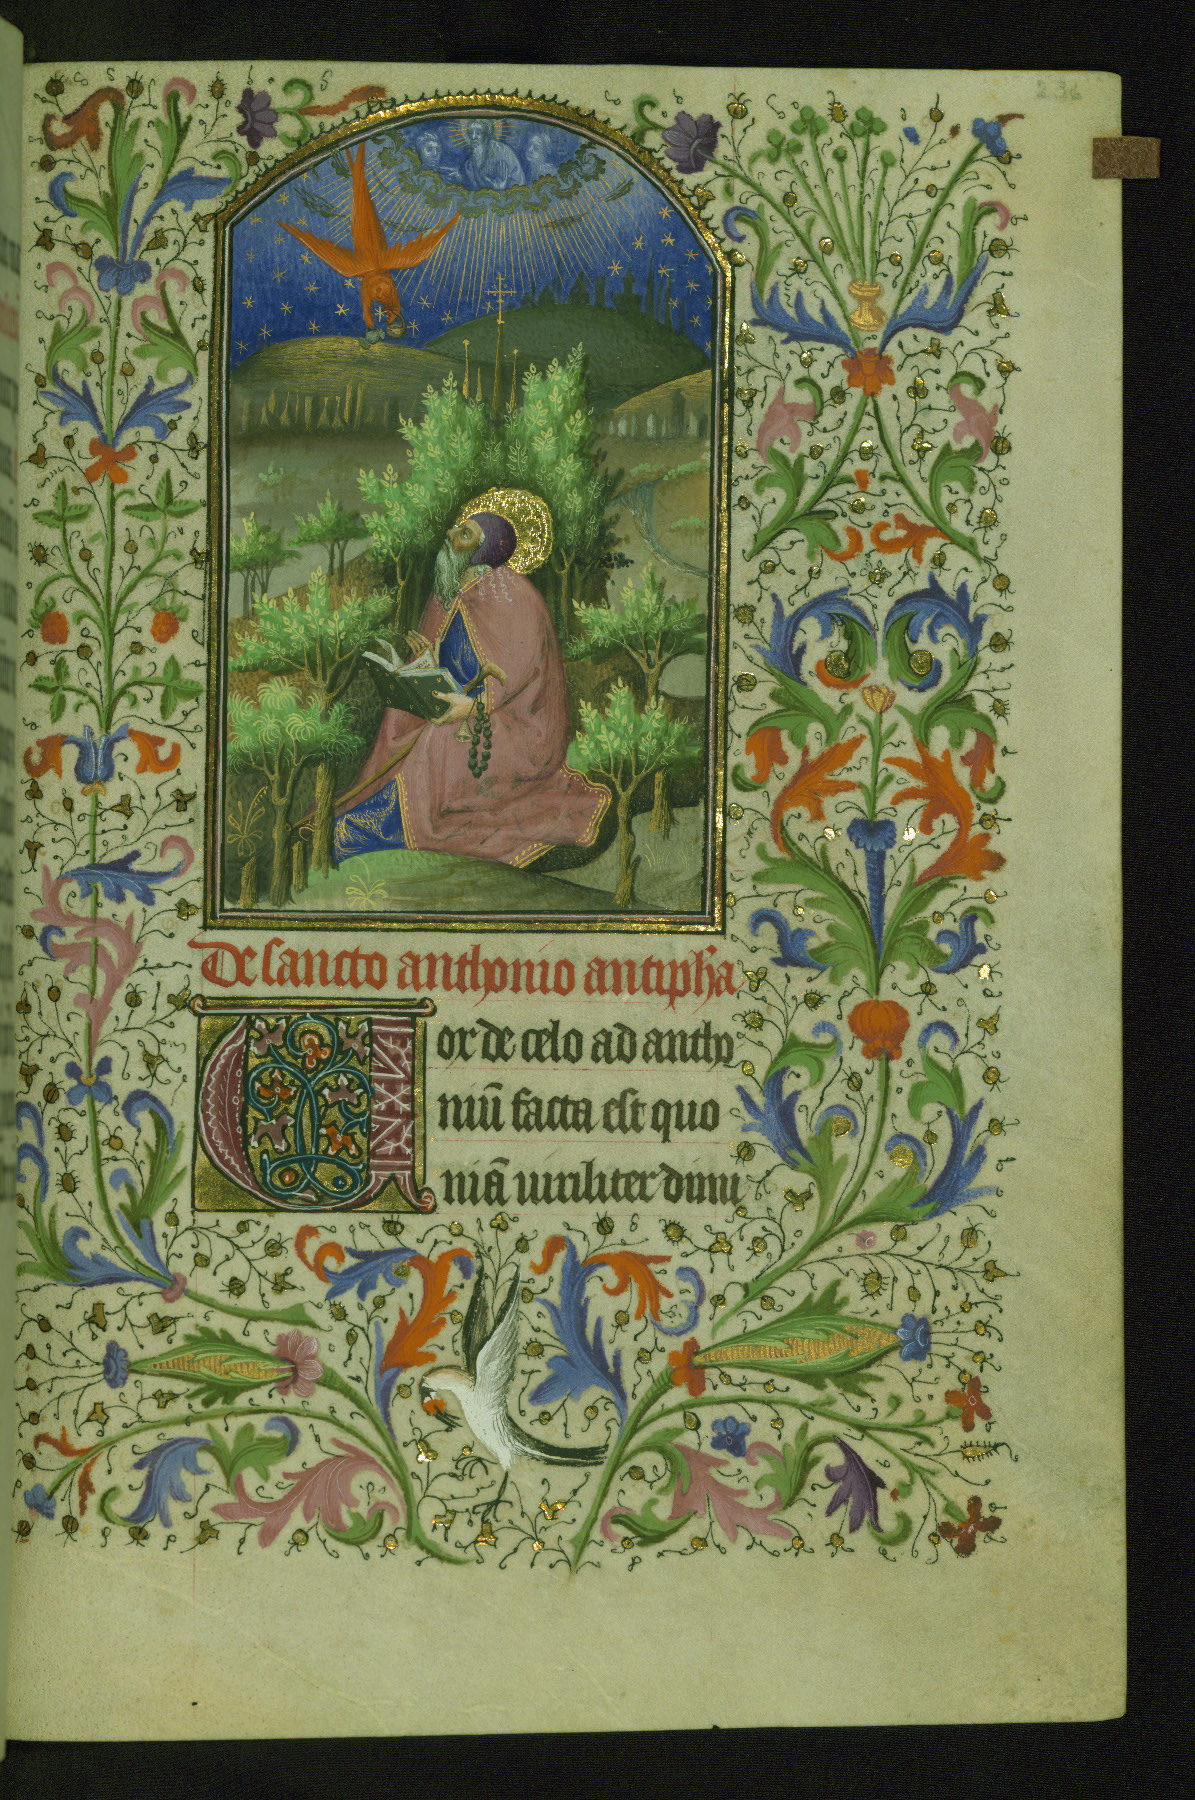 236
De sancto anthonio antiph̄a
Vox de celo ad antho
niū facta est quo
niā uiriliter dimi